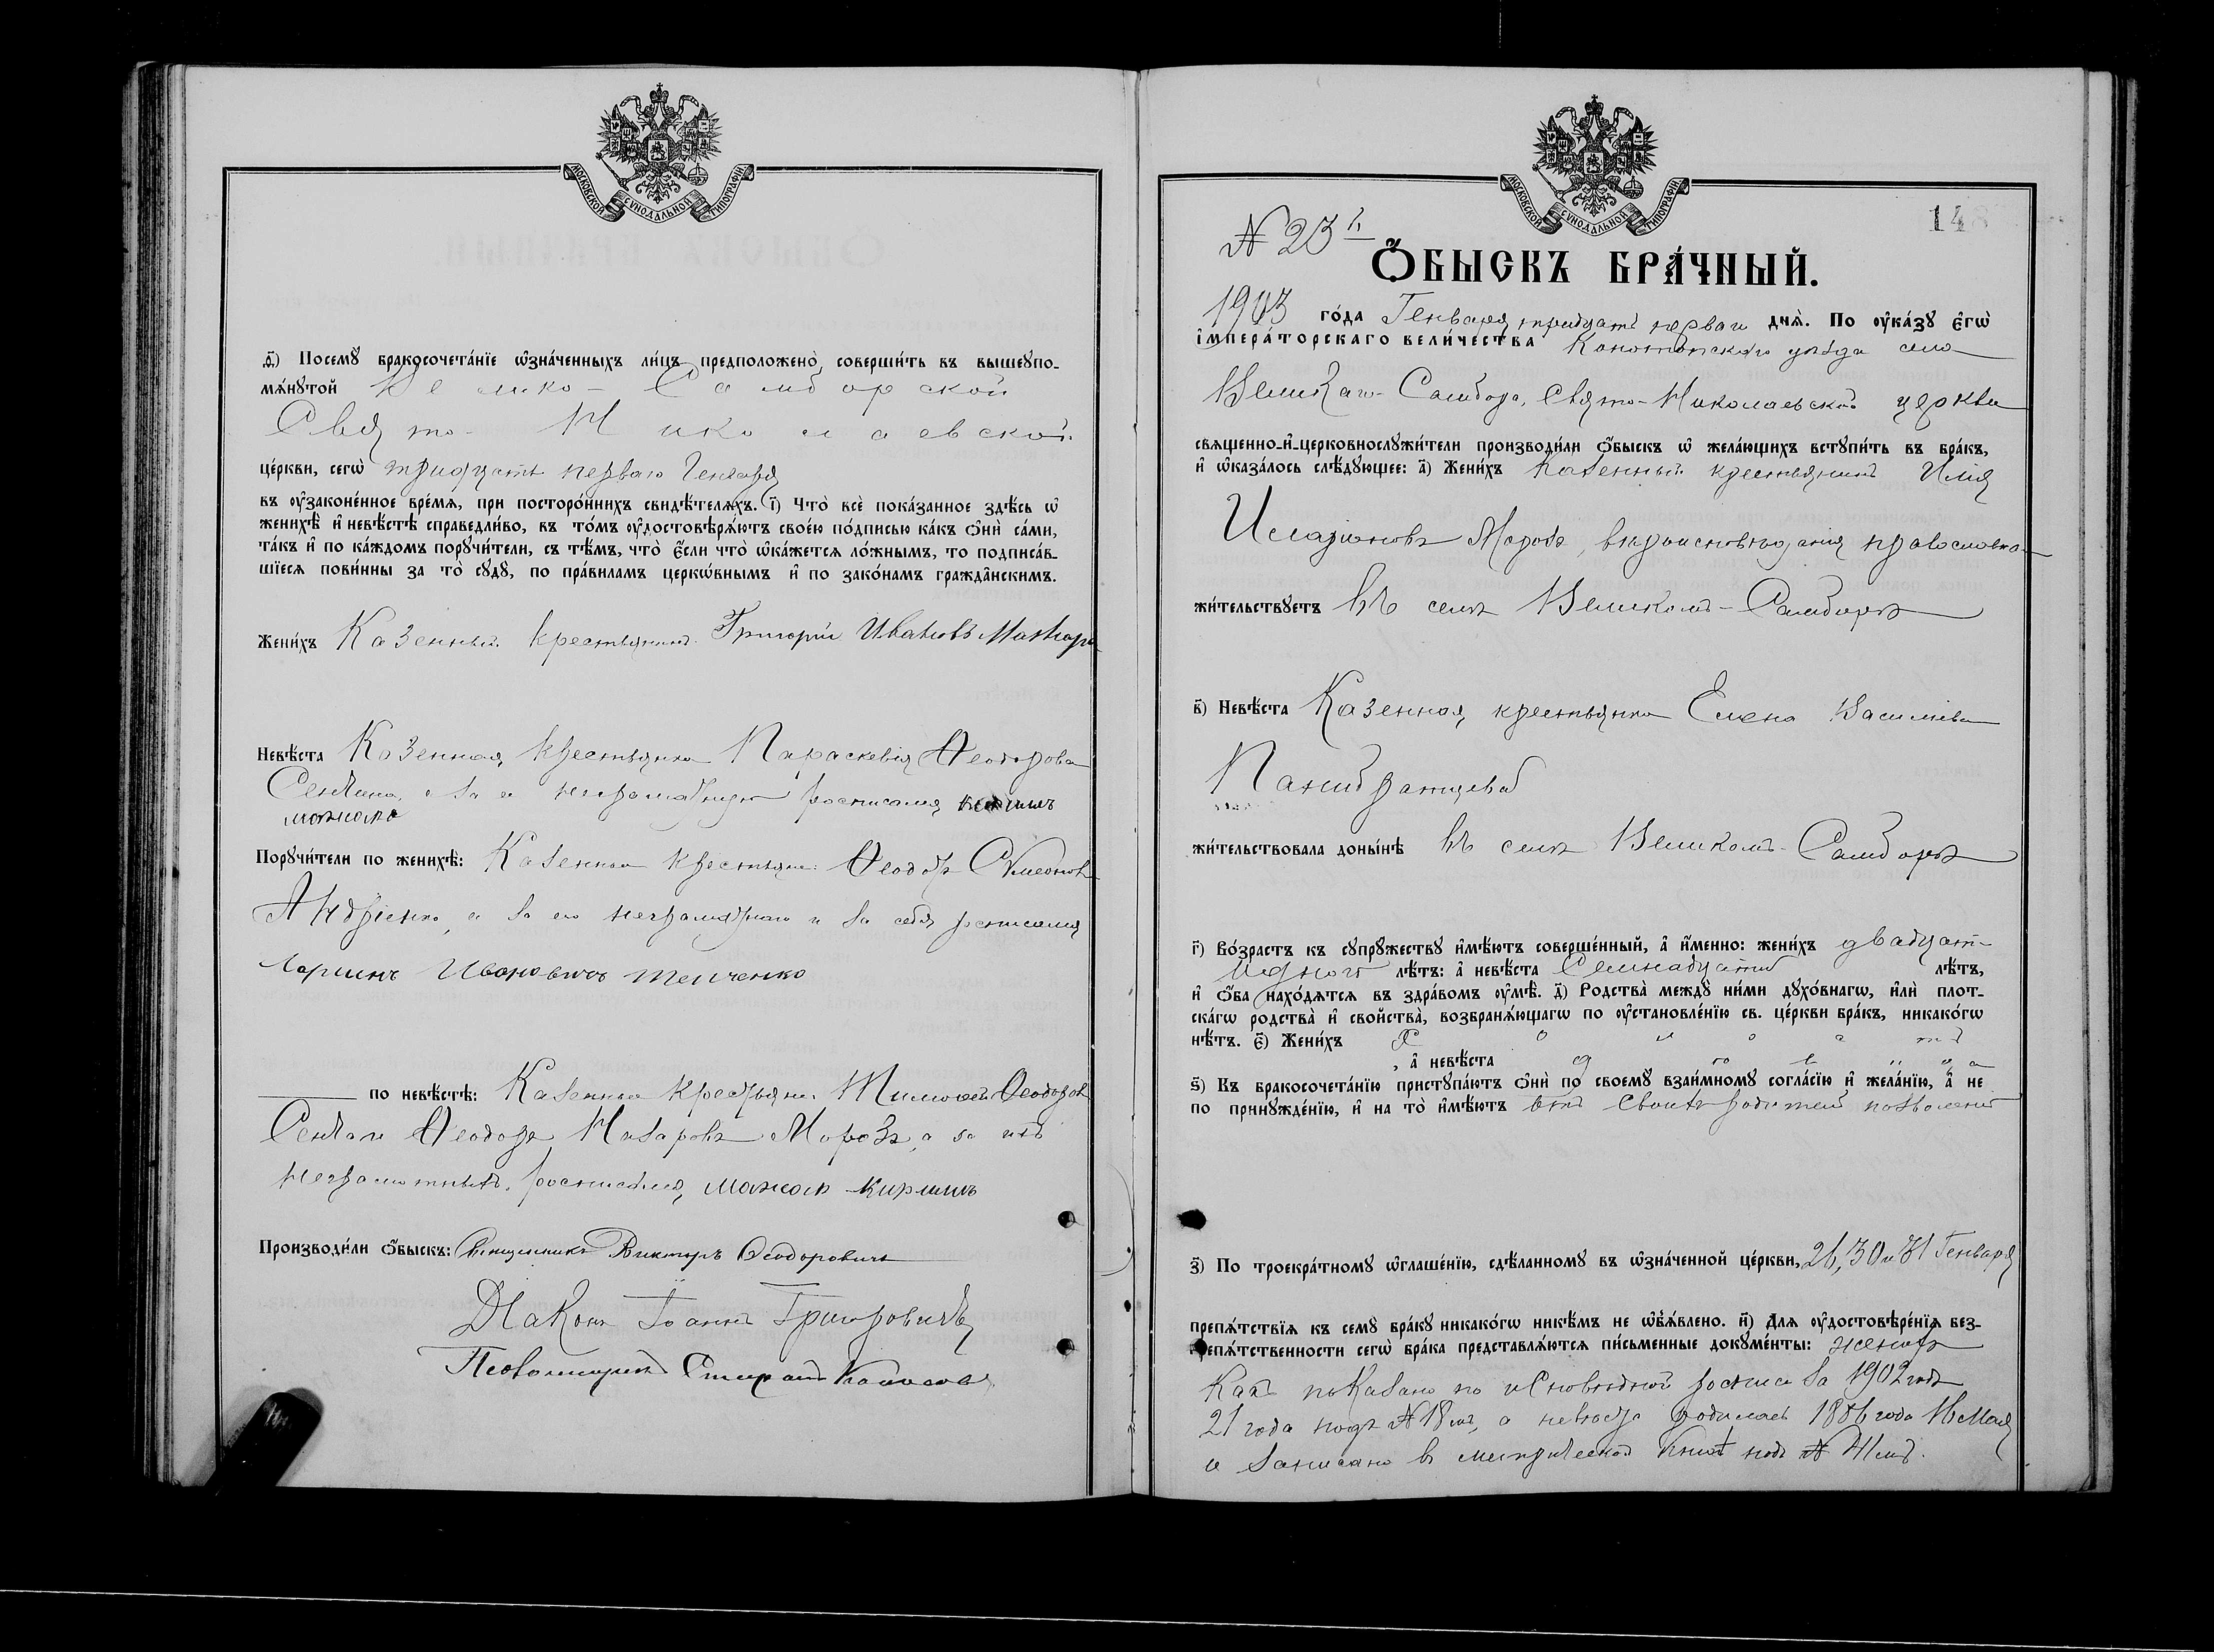 МОСКОВСКОЙ СѴНОДАЛЬНОЙ ТИПОГРАФІИ
д҃і) Посемꙋ̀ бракосочета́нїе ѡ҆зна́ченныхъ ли́цъ предположено̀, соверши́ть въ вышеꙋпо-
мѧ́нꙋтой Велико-Самборской
Свято-Николаевской
це́ркви, сегѡ̀ тридцать перваго Генваря
въ ᲂу҆зако́ненное вре́мѧ, при посторо́ннихъ свидѣ́телѧхъ. і҃) Что̀ всѐ пока́занное здѣ́сь ѡ҆
женихѣ̀ и҆ невѣ́стѣ справедли́во, въ то́мъ ᲂу҆достовѣрѧ́ютъ свое́ю по́дписью ка́къ ѻ҆нѝ са́ми,
та́къ и҆ по ка́ждомъ порꙋчи́тели, съ тѣ́мъ, что̀ є҆́сли что̀ ѡ҆ка́жетсѧ ло́жнымъ, то подписа́в-
шїесѧ пови́нны за то̀ сꙋдꙋ̀, по пра́виламъ церкѡ́внымъ и҆ по зако́намъ гражда̑нскимъ.
Жени́хъ Казенный крестьянинъ Григорій Ивановъ
Невѣ́ста Казенная крестьянка Параскевія Ѳеодорова
а за ея неграмотную росписался
Порꙋчи́тели по женихѣ̀: Казенныи крестьяне: Ѳеодоръ Сѵмеоновъ
Андріенко, а за его неграмотнаго и за себя росписался
Ивановичъ
по невѣ́стѣ: Казенныи крестьяне Тимоѳей Ѳеодоровъ
Ѳеодоръ Назаровъ Морозъ, а за ихъ
неграмотныхъ росписался
Производи́ли ѻ҆́быскъ: Священникъ Викторъ Ѳеодоровичъ
Діаконъ Іоаннъ Григоровичъ
Псаломщикъ
МОСКОВСКОЙ СѴНОДАЛЬНОЙ ТИПОГРАФІИ
148
№ 23й
Ѻ҆́БЫСКЪ БРА́ЧНЫЙ.
1903 го́да Генваря тридцать перваго днѧ̀. По ᲂу҆ка́зꙋ є҆гѡ̀
і҆мпера́торскаго вели́чества Конотопскаго уѣзда села
Великаго-Самбора, Свято-Николаевской церкви
свѧщенно-и҆-церковнослꙋжи́тели производи́ли ѻ҆́быскъ ѡ҆ жела́ющихъ встꙋпи́ть въ бра́къ,
и҆ ѡ҆каза́лось слѣ́дꙋющее: а҃) Жени́хъ казенный крестьянинъ Илія
Иларіоновъ Морозъ, вѣроисповѣданія православна
жи́тельствꙋетъ въ селѣ Великомъ-Самборѣ
в҃) Невѣ́ста Казенная крестьянка Елена Василіева
жи́тельствовала донынѣ въ селѣ Великомъ-Самборѣ
г҃) Во́зрастъ къ сꙋпрꙋжествꙋ и҆мѣ́ютъ соверше́нный, а҆ и҆́менно: жени́хъ двадцать
лѣ́тъ: а҆ невѣ́ста Семнадцать лѣ́тъ,
и҆ ѻ҆́ба нахо́дѧтсѧ въ здра́вомъ ᲂу҆мѣ̀. д҃) Родства̀ междꙋ̀ ни́ми дꙋхо́внагѡ, и҆лѝ плот-
ска́гѡ родства̀ и҆ сво́йства, возбранѧ́ющагѡ по ᲂу҆становле́нїю св. це́ркви бра́къ, никако́гѡ
нѣ́тъ. є҃) Жени́хъ холостъ
, а҆ невѣ́ста
ѕ҃) Къ бракосочета́нїю пристꙋпа́ютъ ѻ҆нѝ по своемꙋ̀ взаи́мномꙋ согла́сїю и҆ жела́нїю, а҆ не
по принꙋжде́нїю, и҆ на то̀ и҆мѣ́ютъ отъ своихъ родителей позволеніе
з҃) По троекра́тномꙋ ѡ҆глаше́нїю, сдѣ́ланномꙋ въ ѡ҆зна́ченной це́ркви, 26, 30 и 31 Генваря
препѧ́тствїѧ къ семꙋ̀ бра́кꙋ никако́гѡ никѣ́мъ не ѡ҆б̾ѧ́влено. и҃) Длѧ ᲂу҆достовѣре́нїѧ без-
препѧ́тственности сегѡ̀ бра́ка представлѧ́ютсѧ пи́сьменные докꙋме́нты: женихъ
какъ показано по исповѣдной росписи за 1902 годъ
21 года подъ № 18мъ, а невѣста родилась 1886 года Мая
и записана въ метрической книгѣ подъ №